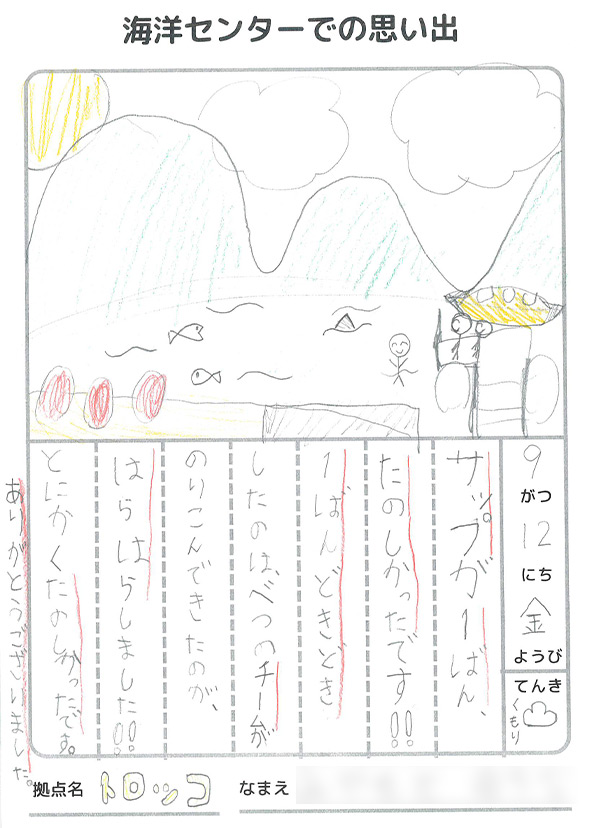 海洋センターでの思い出
9
がつ
12
にち
金
ようび
てんき
くもり
サップが1ばん、
たのしかったです!!
1ばんどきどき
したのは、べつのチームが
のりこんできたのが、
はらはらしました!!
とにかくたのしかったです。
ありがとうございました。
拠点名 トロッコ
なまえ